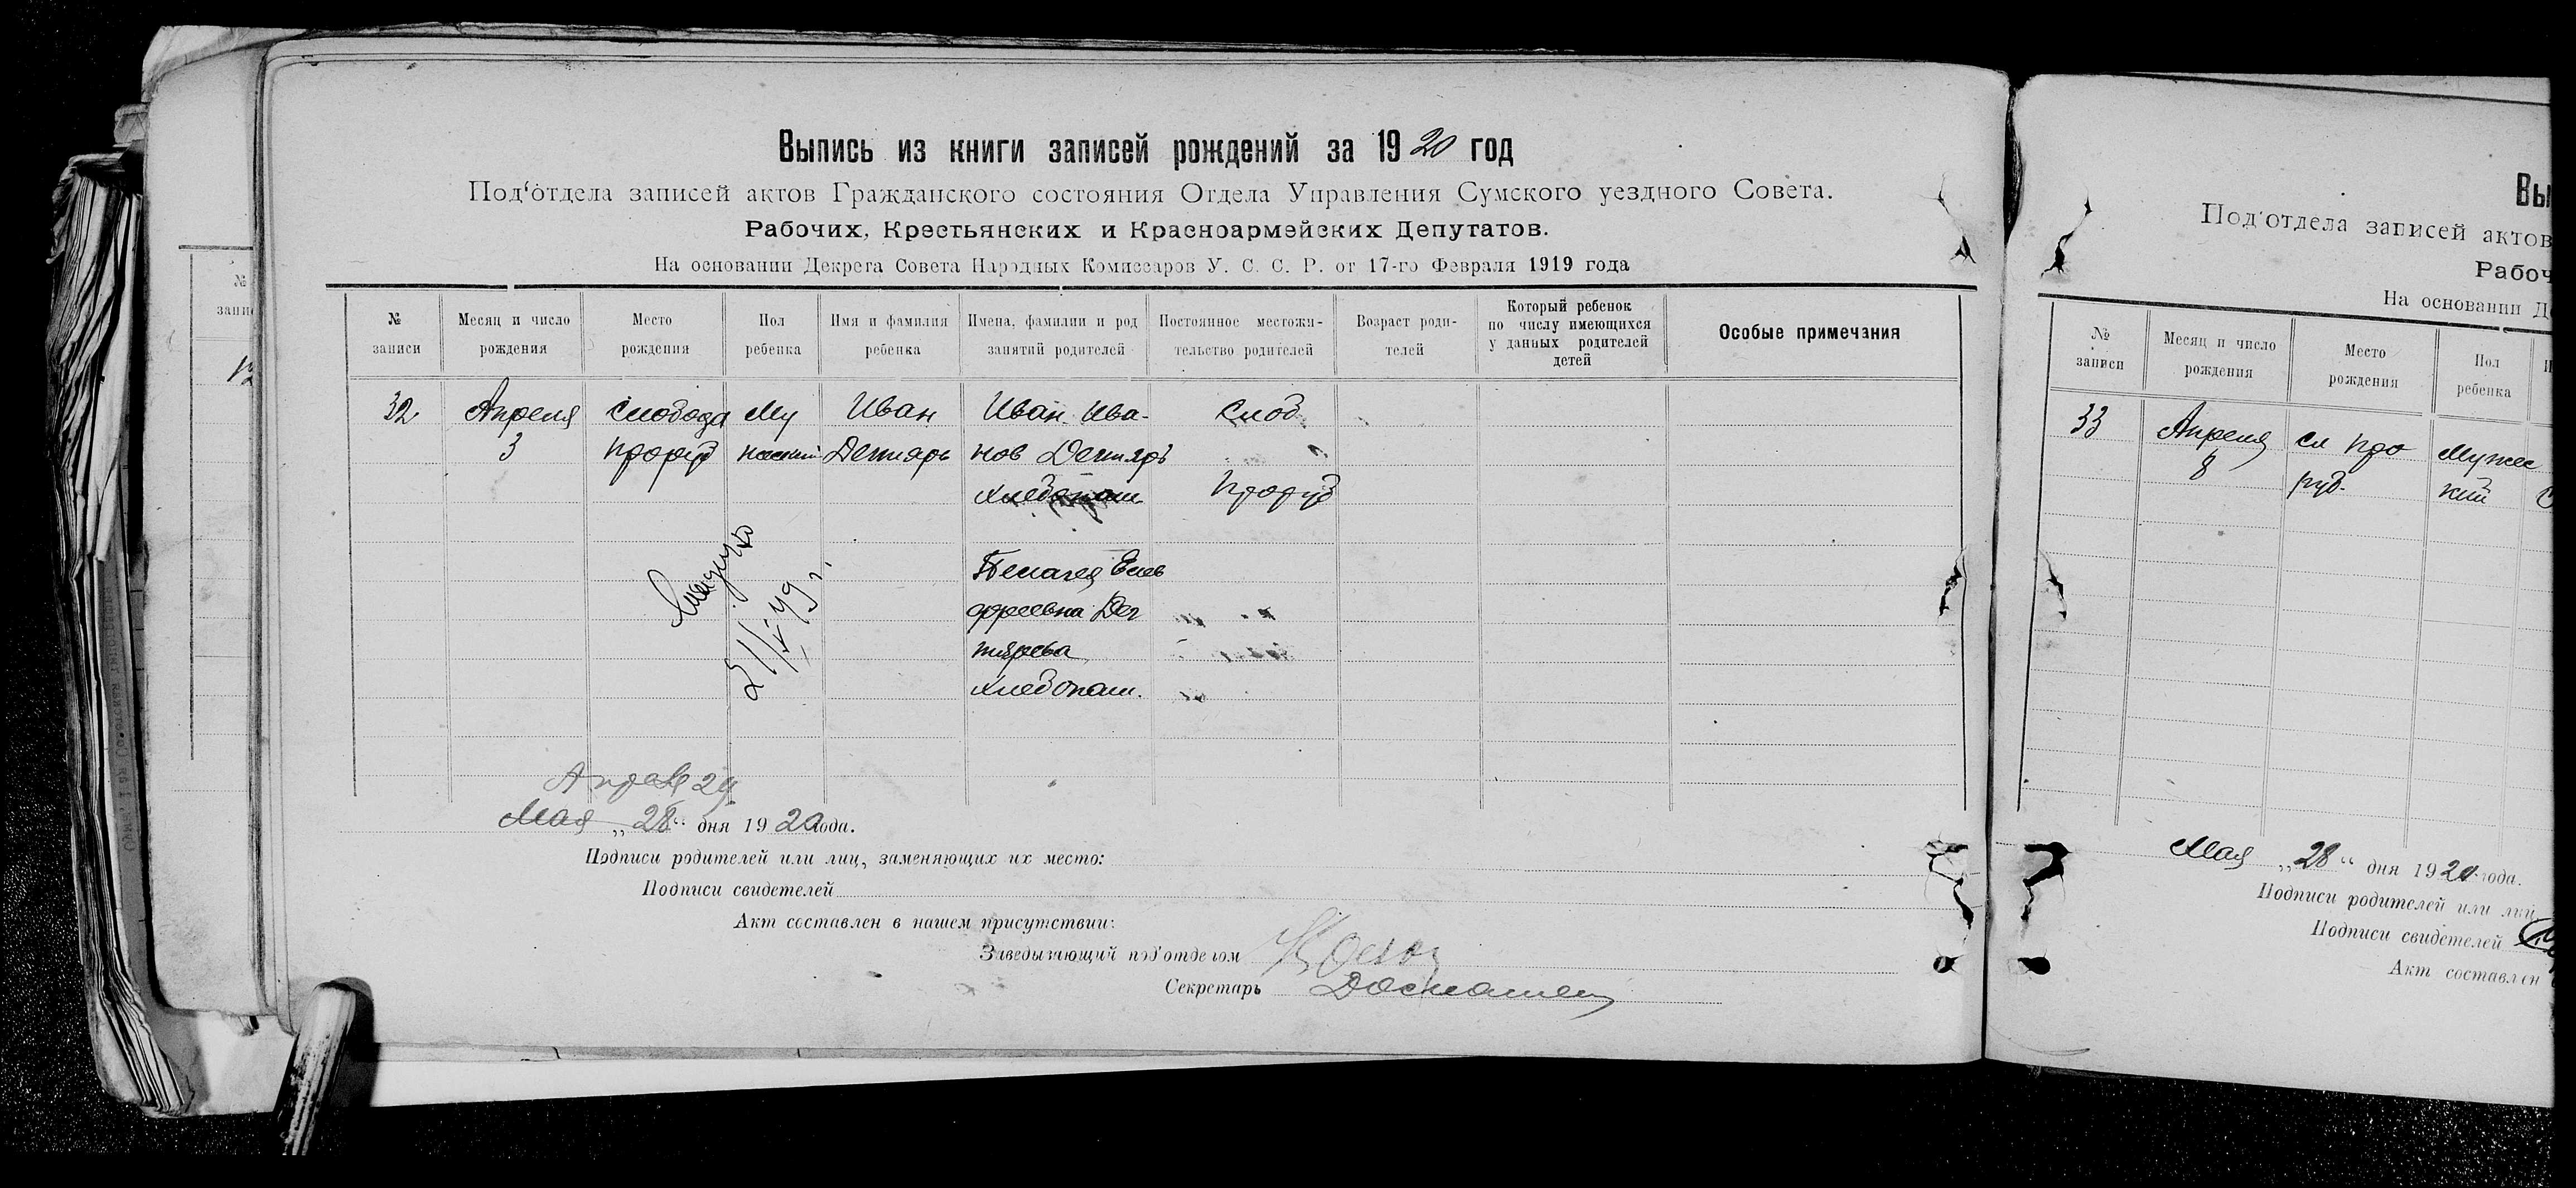 Выпись из книги записей рождений за 1920 год
Под‘отдела записей актов Гражданского состояния Отдела Управления Сумского уездного Совета.
Рабочих, Крестьянских и Красноармейских Депутатов.
На основании Декрета Совета Народных Комиссаров У. С. С. Р. от 17-го Февраля 1919 года
№ записи
Месяц и число рождения
Место рождения
Пол ребенка
Имя и фамилия ребенка
Имена, фамилии и род занятий родителей
Постоянное местожительство родителей
Возраст родителей
Который ребенок по числу имеющихся у данных родителей детей
Особые примечания
32 Апреля Слобода Му Иван Иван Ива- Слоб
3 Проруб жеский Дегтярь нов Дегтярь
хлебопаш. Проруб
Пелагея Елев
ферьевна Дег
тярева
хлебопаш.
21/V-79 г.
Апреля 29
Мая „28“ дня 1920 года.
Подписи родителей или лиц, заменяющих их место:
Подписи свидетелей
Акт составлен в нашем присутствии:
Заведывающий под‘отделом
Секретарь
№
запи
12
Вы
Под‘отдела записей актов
Рабоч
На основании Де
№ записи
Месяц и число рождения
Место рождения
Пол ребенка
33 Апреля сл Про Мужес
8 руб. кий
Мая „28“ дня 1920 года.
Подписи родителей или лиц
Подписи свидетелей
Акт составлен